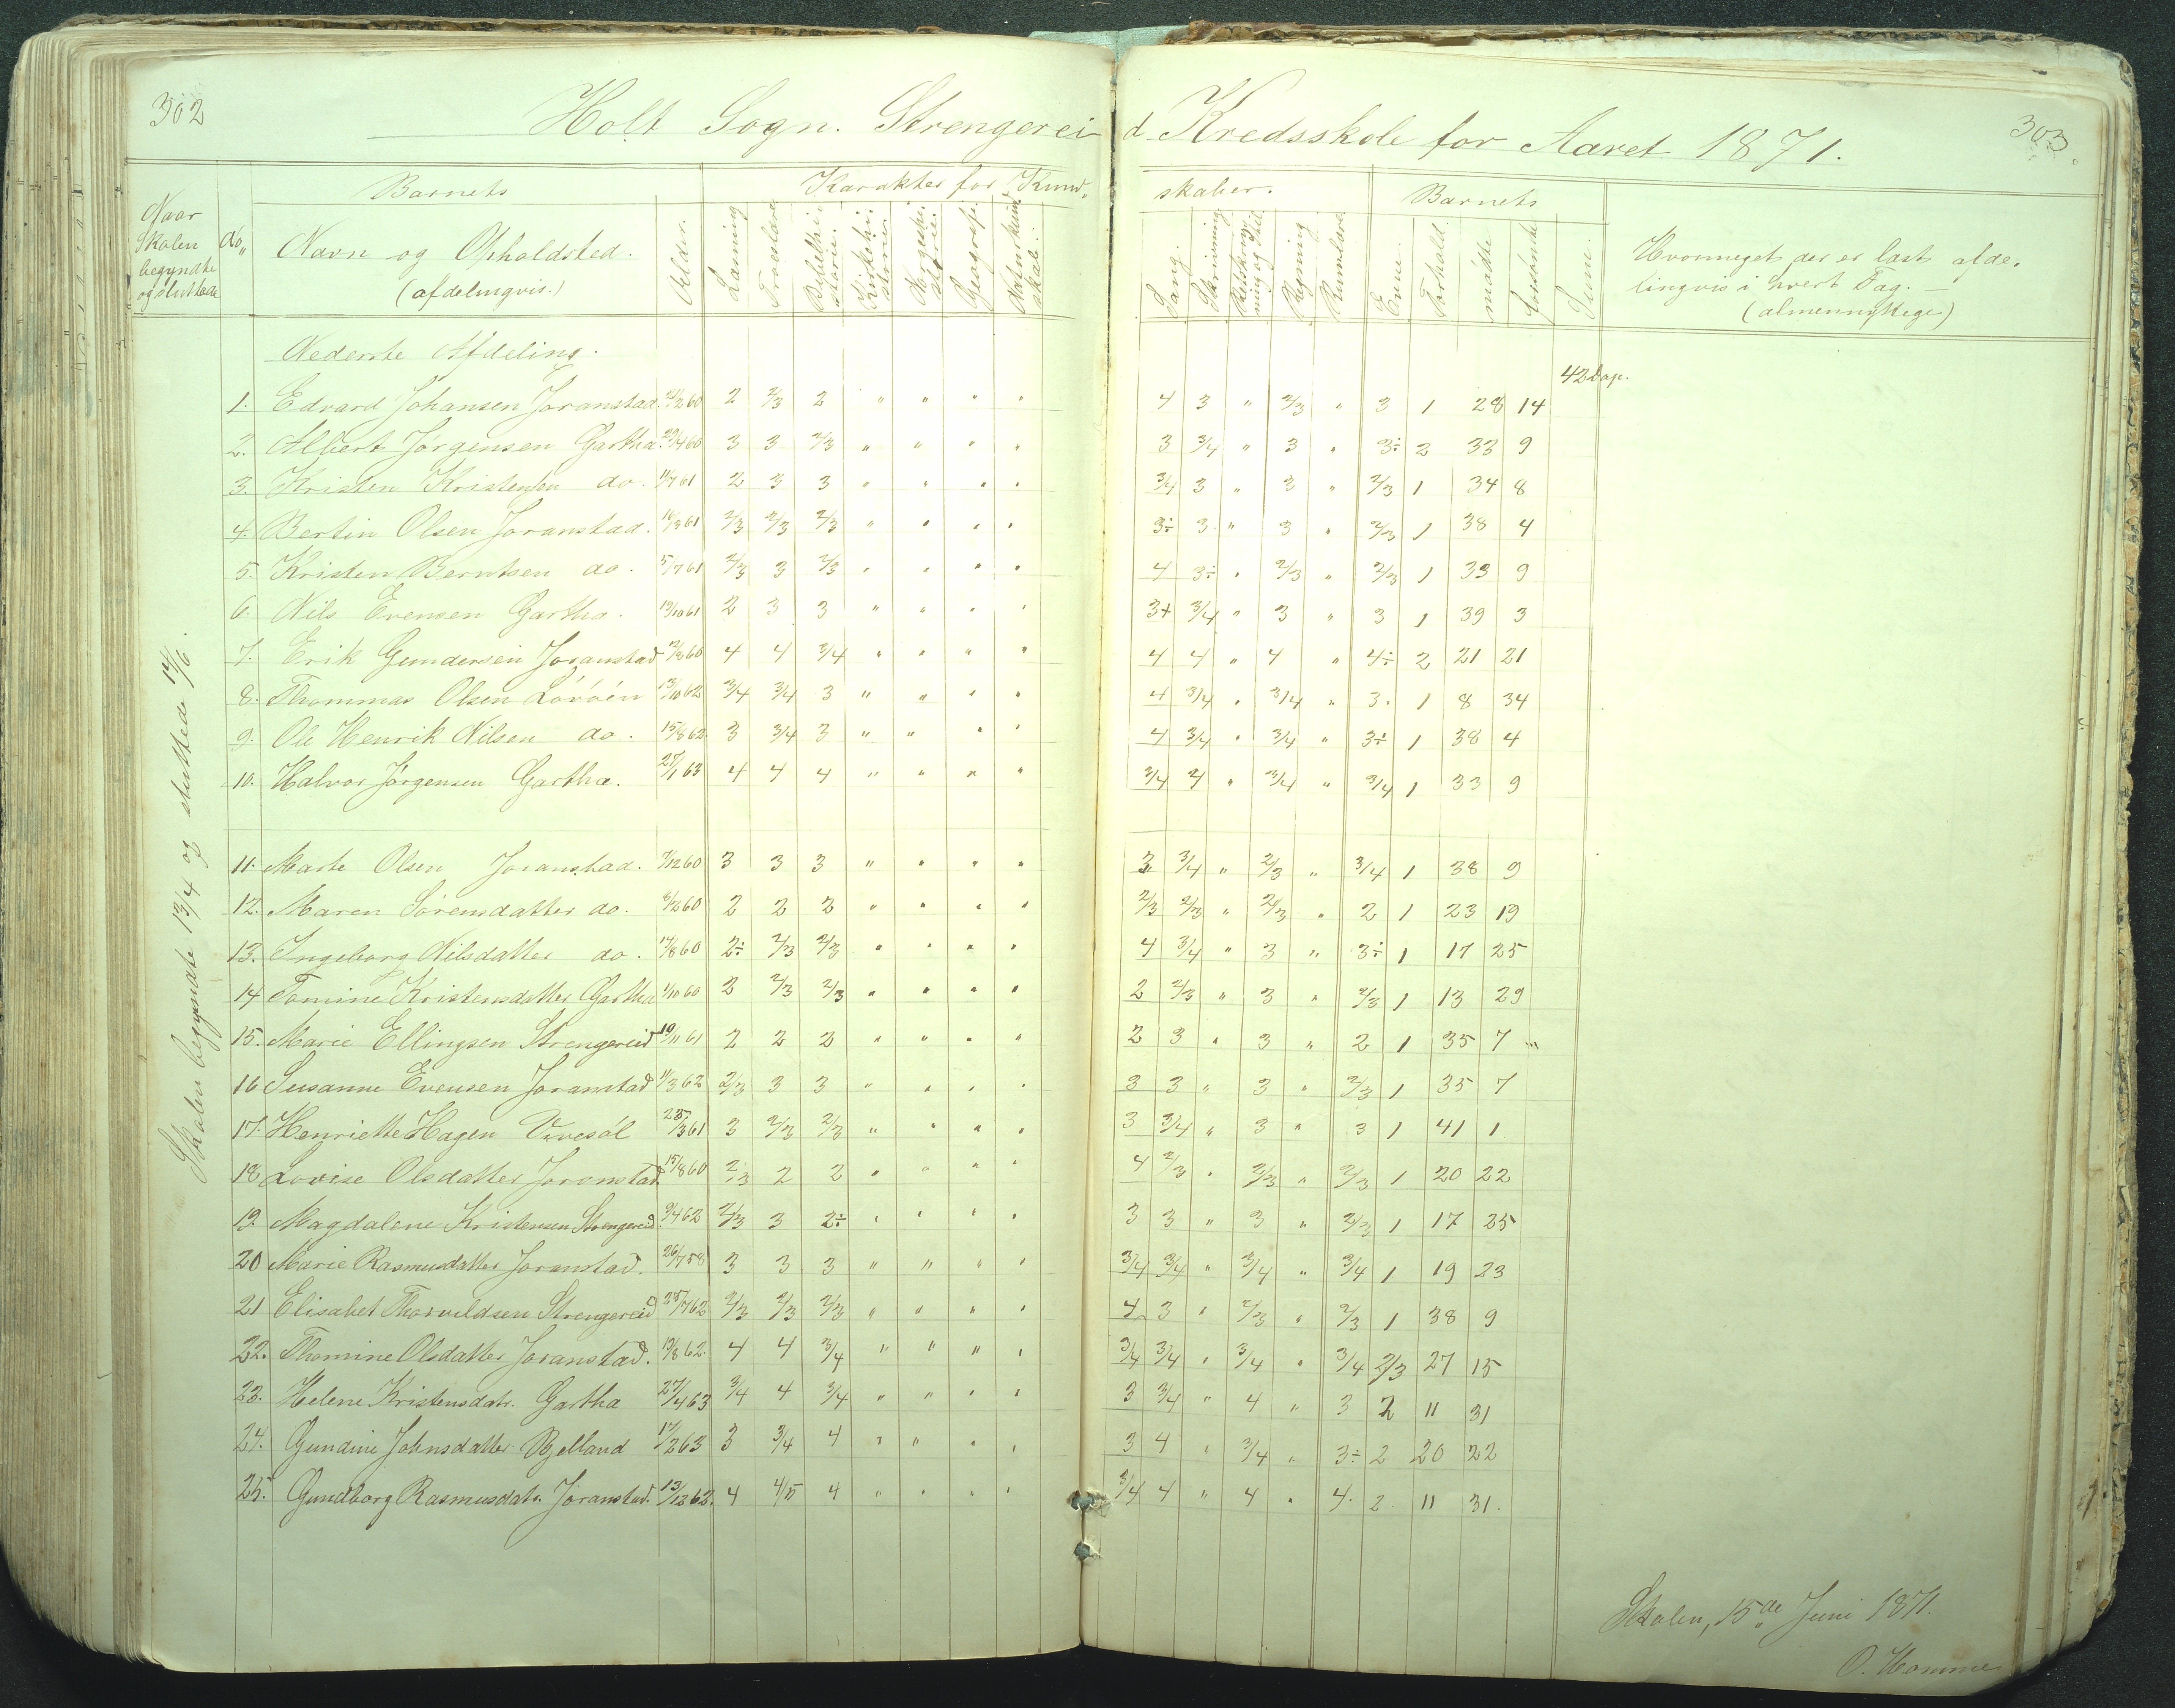 302
303
Holt Sogn. Strengereid Kredsskole for Aaret 1871.
Naar Skolen begyndte og sluttede
do „
Barnets
Navn og Opholdsted.
(afdelingvis.)
Alder.
Karakter for Kundskaber.
Læsning
Troeslære
Bibelhistorie.
Kirkehistorie.
Norgeshistorie.
Geografi.
Naturkundskab.
Sang.
Skrivning
Retskrivning og Stil
Regning
Rumlære
Barnets
Evne.
Forhold.
mødte
forsømte
Sum.
Hvormeget der er læst afdelingvis i hvert Fag. —
(almennyttige)
Skolen begyndte 13/4 og sluttede 14/6.
Nederste Afdeling.
42 Dage.
1. Edvard Johansen Joranstad. 21/2 60 2 2/3 2 " " " " 4 3 " 2/3 " 3 1 28 14
2. Albert Jørgensen Gartha. 29/4 60 3 3 2/3 " " " " 3 3/4 " 3 " 3÷ 2 33 9
3. Kristen Kristensen do. 11/7 61 2 3 3 " " " " 3/4 3 " 3 " 2/3 1 34 8
4. Bertin Olsen Joranstad. 16/3 61 2/3 2/3 2/3 " " " " 3÷ 3 " 3 " 2/3 1 38 4
5. Kristen Berntsen do. 5/7 61 2/3 3 2/3 " " " " 4 3÷ " 2/3 " 2/3 1 33 9
6. Nils Evensen Gartha. 19/10 61 2 3 3 " " " " 3+ 3/4 " 3 " 3 1 39 3
7. Erik Gundersen Joranstad 12/8 60 4 4 3/4 " " " " 4 4 " 4 " 4÷ 2 21 21
8. Thommas Olsen Lövöén 13/10 62 3/4 3/4 3 " " " " 4 3/4 " 3/4 " 3 1 8 34
9. Ole Henrik Nilsen do. 15/8 62 3 3/4 3 " " " " 4 3/4 " 3/4 " 3÷ 1 38 4
10. Halvor Jørgensen Gartha. 27/1 63 4 4 4 " " " " 3/4 4 " 3/4 " 3/4 1 33 9
11. Marte Olsen Joranstad. 7/12 60 3 3 3 " " " " 3 3/4 " 2/3 " 3/4 1 38 9
12. Maren Sörensdatter do. 8/2 60 2 2 2 " " " " 2/3 2/3 " 2/3 " 2 1 23 19
13. Ingeborg Nilsdatter do. 14/8 60 2÷ 2/3 2/3 " " " " 4 3/4 " 3 " 3÷ 1 17 25
14 Tomine Kristensdatter Gartha 1/10 60 2 2/3 2/3 " " " " 2 2/3 " 3 " 2/3 1 13 29
15. Marie Ellingsen Strengereid 10/11 61 2 2 2 " " " " 2 3 " 3 " 2 1 35 7
16 Susanne Evensen Joranstad 11/3 62 2/3 3 3 " " " " 3 3 " 3 " 2/3 1 35 7
17. Henriette Hagen Vivesöl 28/3 61 3 2/3 2/3 " " " " 3 3/4 " 3 " 3 1 41 1
18 Lovise Olsdatter Joronstad. 15/8 60 2/3 2 2 " " " " 4 2/3 " 2/3 " 2/3 1 20 22
19. Magdalene Kristensen Strengereid. 9/4 62 2/3 3 2÷ " " " " 3 3 " 3 " 2/3 1 17 25
20 Marie Rasmusdatter Joranstad. 26/7 58 3 3 3 " " " " 3/4 3/4 " 3/4 " 3/4 1 19 23
21 Elisabet Thorvildsen Strengereid 28/7 62 2/3 2/3 2/3 " " " " 4 3 " 2/3 " 2/3 1 38 9
22. Thomine Olsdatter Joranstad. 19/8 62 4 4 3/4 " " " " 3/4 3/4 " 3/4 " 3/4 2/3 27 15
23. Helene Kristensdatr. Gartha 27/4 63 3/4 4 3/4 " " " " 3 3/4 " 4 " 3 2 11 31
24. Gundine Johnsdatter Bjelland 17/2 63 3 3/4 4 " " " " 3 4 " 3/4 " 3÷ 2 20 22
25. Gundborg Rasmusdatr. Joranstad. 13/12 62. 4 4/5 4 " " " " 3/4 4 " 4 " 4. 2. 11 31.
Skolen, 15de Juni 1871.
O. Hommes